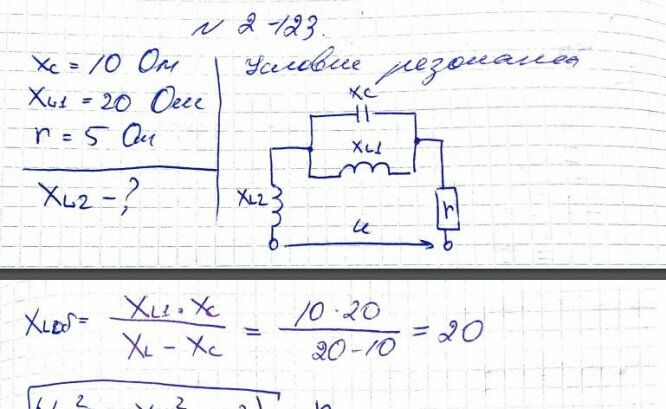 N 2-123.
Xc = 10 Ом
XL1 = 20 Ом
r = 5 Ом
XL2 - ?
Условие резонанса
Xc
XL1
XL2
r
u
XL1·Xc / XL - Xc = 10·20 / 20-10 = 20